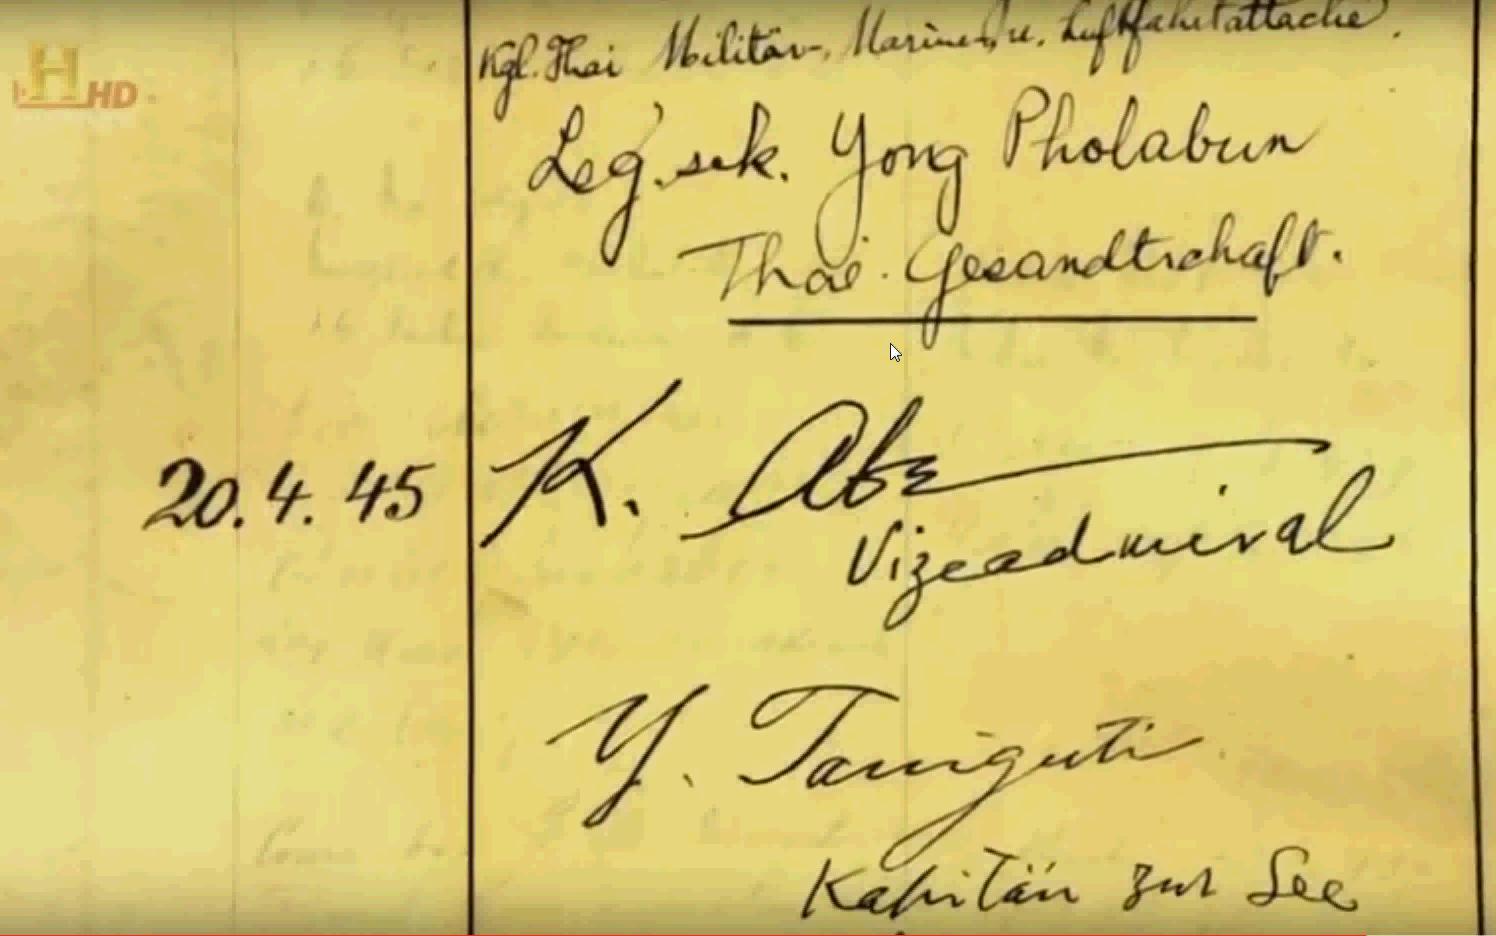 H
HD
Kgl. Thai Militär-, Marine- u. Luftfahrtattaché.
Leg. sek. Yong Pholabun
Thai. Gesandtschaft.
20.4.45 K. Abe
Vizeadmiral
Y. Taniguti
Kapitän zur See